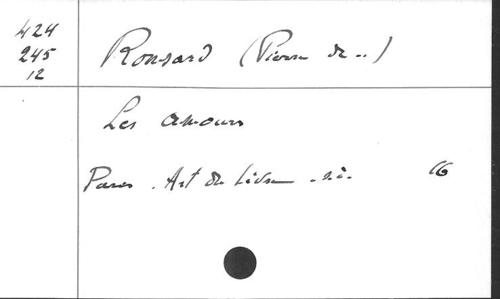 424
245
12
Ronsard (Pierre de ..)
Les amours
Paris . Art du Livre . s.d. 16